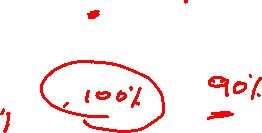 , 100% 90%